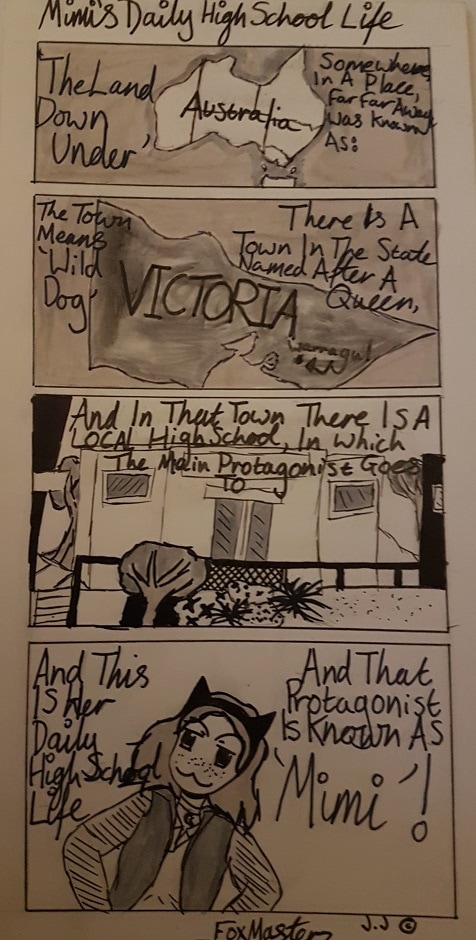 Mimi's Daily High School Life
Somewhere,
In A Place,
Far Far Away
Was Known
As:
The Land
Down
Under'
Australia
There Is A
Town In The State
Named After A
Queen,
The Town
Means
'Wild
Dog'
VICTORIA
Warragul
And In That Town There Is A
LOCAL High School, In Which
The Main Protagonist Goes
To
And That
Protagonist
Is Known As
'Mimi'!
And This
Is Her
Daily
High School
Life
FoxMaster
J.J ©